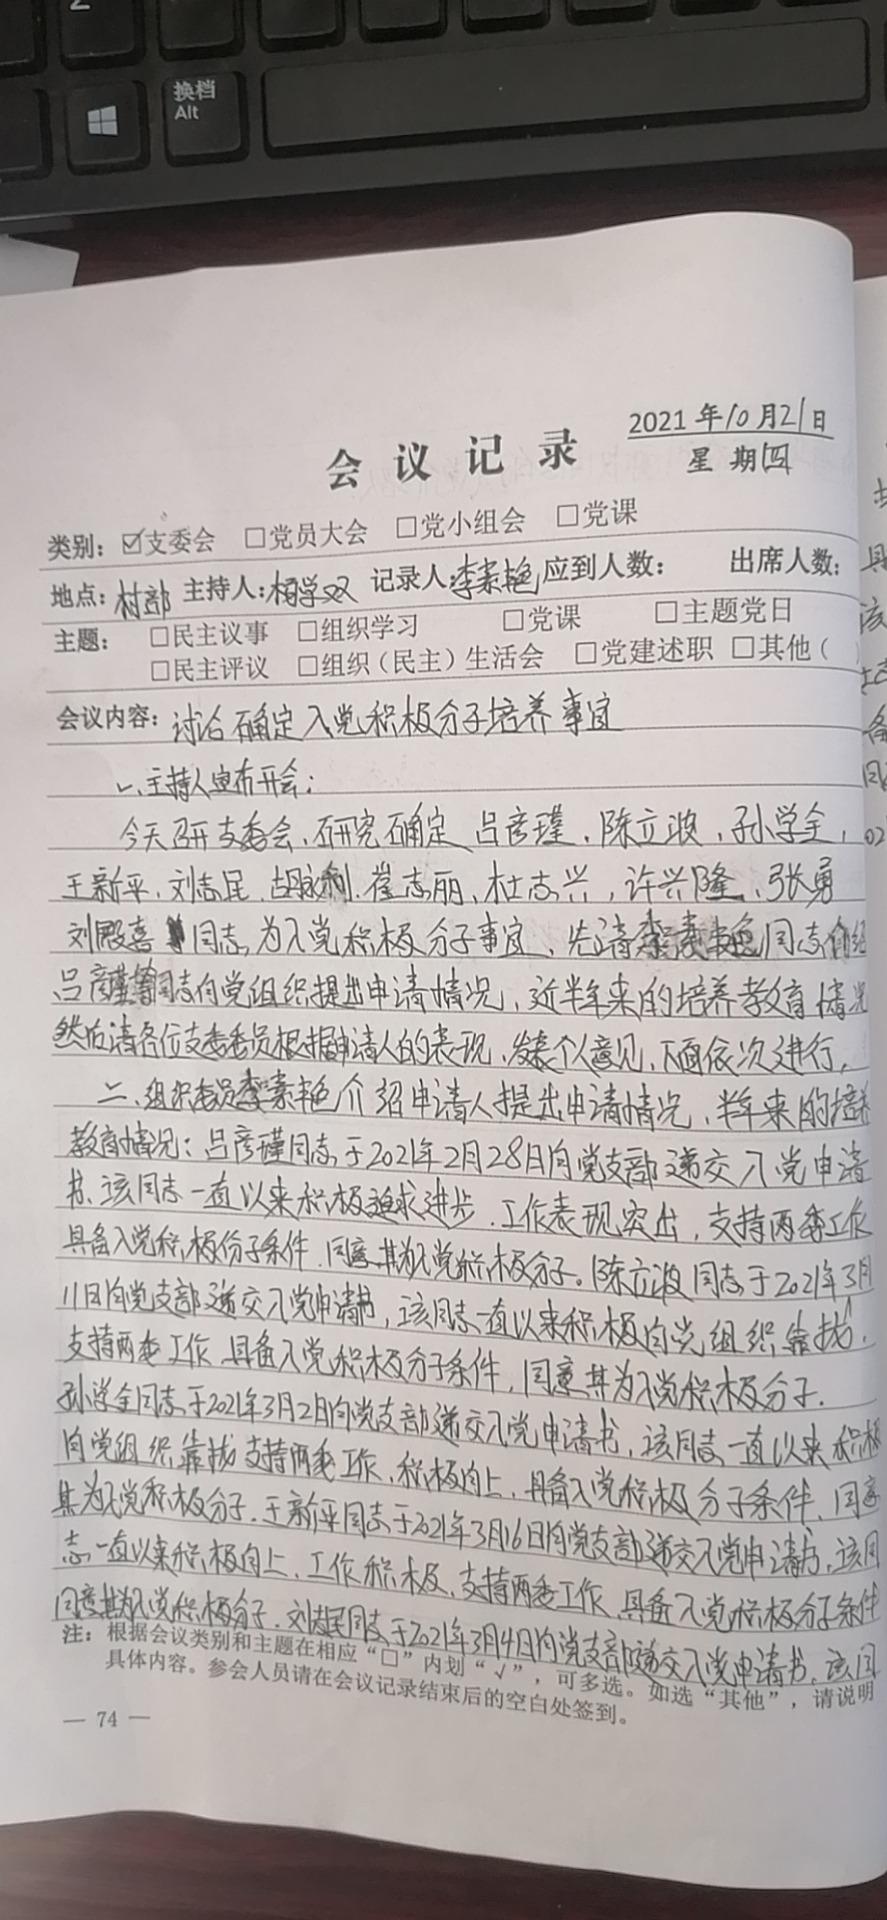 换档
Alt
2021年10月21日
会议记录
星期四
类别：☑支委会 □党员大会 □党小组会 □党课
地点：村部 主持人：柏学双 记录人：李素艳 应到人数： 出席人数：
主题： □民主议事 □组织学习 □党课 □主题党日
□民主评议 □组织（民主）生活会 □党建述职 □其他（
会议内容：讨论确定入党积极分子培养事宜
一、主持人宣布开会：
今天召开支委会、研究确定吕彦瑾、陈立波、孙学全，
王新平、刘志民、胡永利、崔志丽、杜志兴，许兴隆、张勇
刘殿喜等同志为入党积极分子事宜、先请李素艳同志介绍
吕彦瑾等同志向党组织提出申请情况，近半年来的培养教育情况
然后请各位支委委员根据申请人的表现，发表个人意见，下面依次进行，
二、组织委员李素艳介绍申请人提出申请情况，半年来的培养
教育情况：吕彦瑾同志于2021年2月28日向党支部递交入党申请
书、该同志一直以来积极追求进步，工作表现突出，支持两委工作
具备入党积极份子条件，同意其为入党积极分子。陈立波同志于2021年3月
11日向党支部递交入党申请书，该同志一直以来积极向党组织靠拢，
支持两委工作，具备入党积极分子条件，同意其为入党积极分子．
孙学全同志于2021年3月2日向党支部递交入党申请书，该同志一直以来积极
向党组织靠拢支持两委工作、积极向上，具备入党积极分子条件、同意
其为入党积极分子．王新平同志于2021年3月16日向党支部递交入党申请书，该同
志一直以来积极向上，工作积极，支持两委工作，具备入党积极分子条件
同意其为入党积极分子．刘志民同志于2021年3月4日向党支部递交入党申请书，该同
注：根据会议类别和主题在相应“□”内划“√”，可多选。如选“其他”，请说明
具体内容。参会人员请在会议记录结束后的空白处签到。
— 74 —